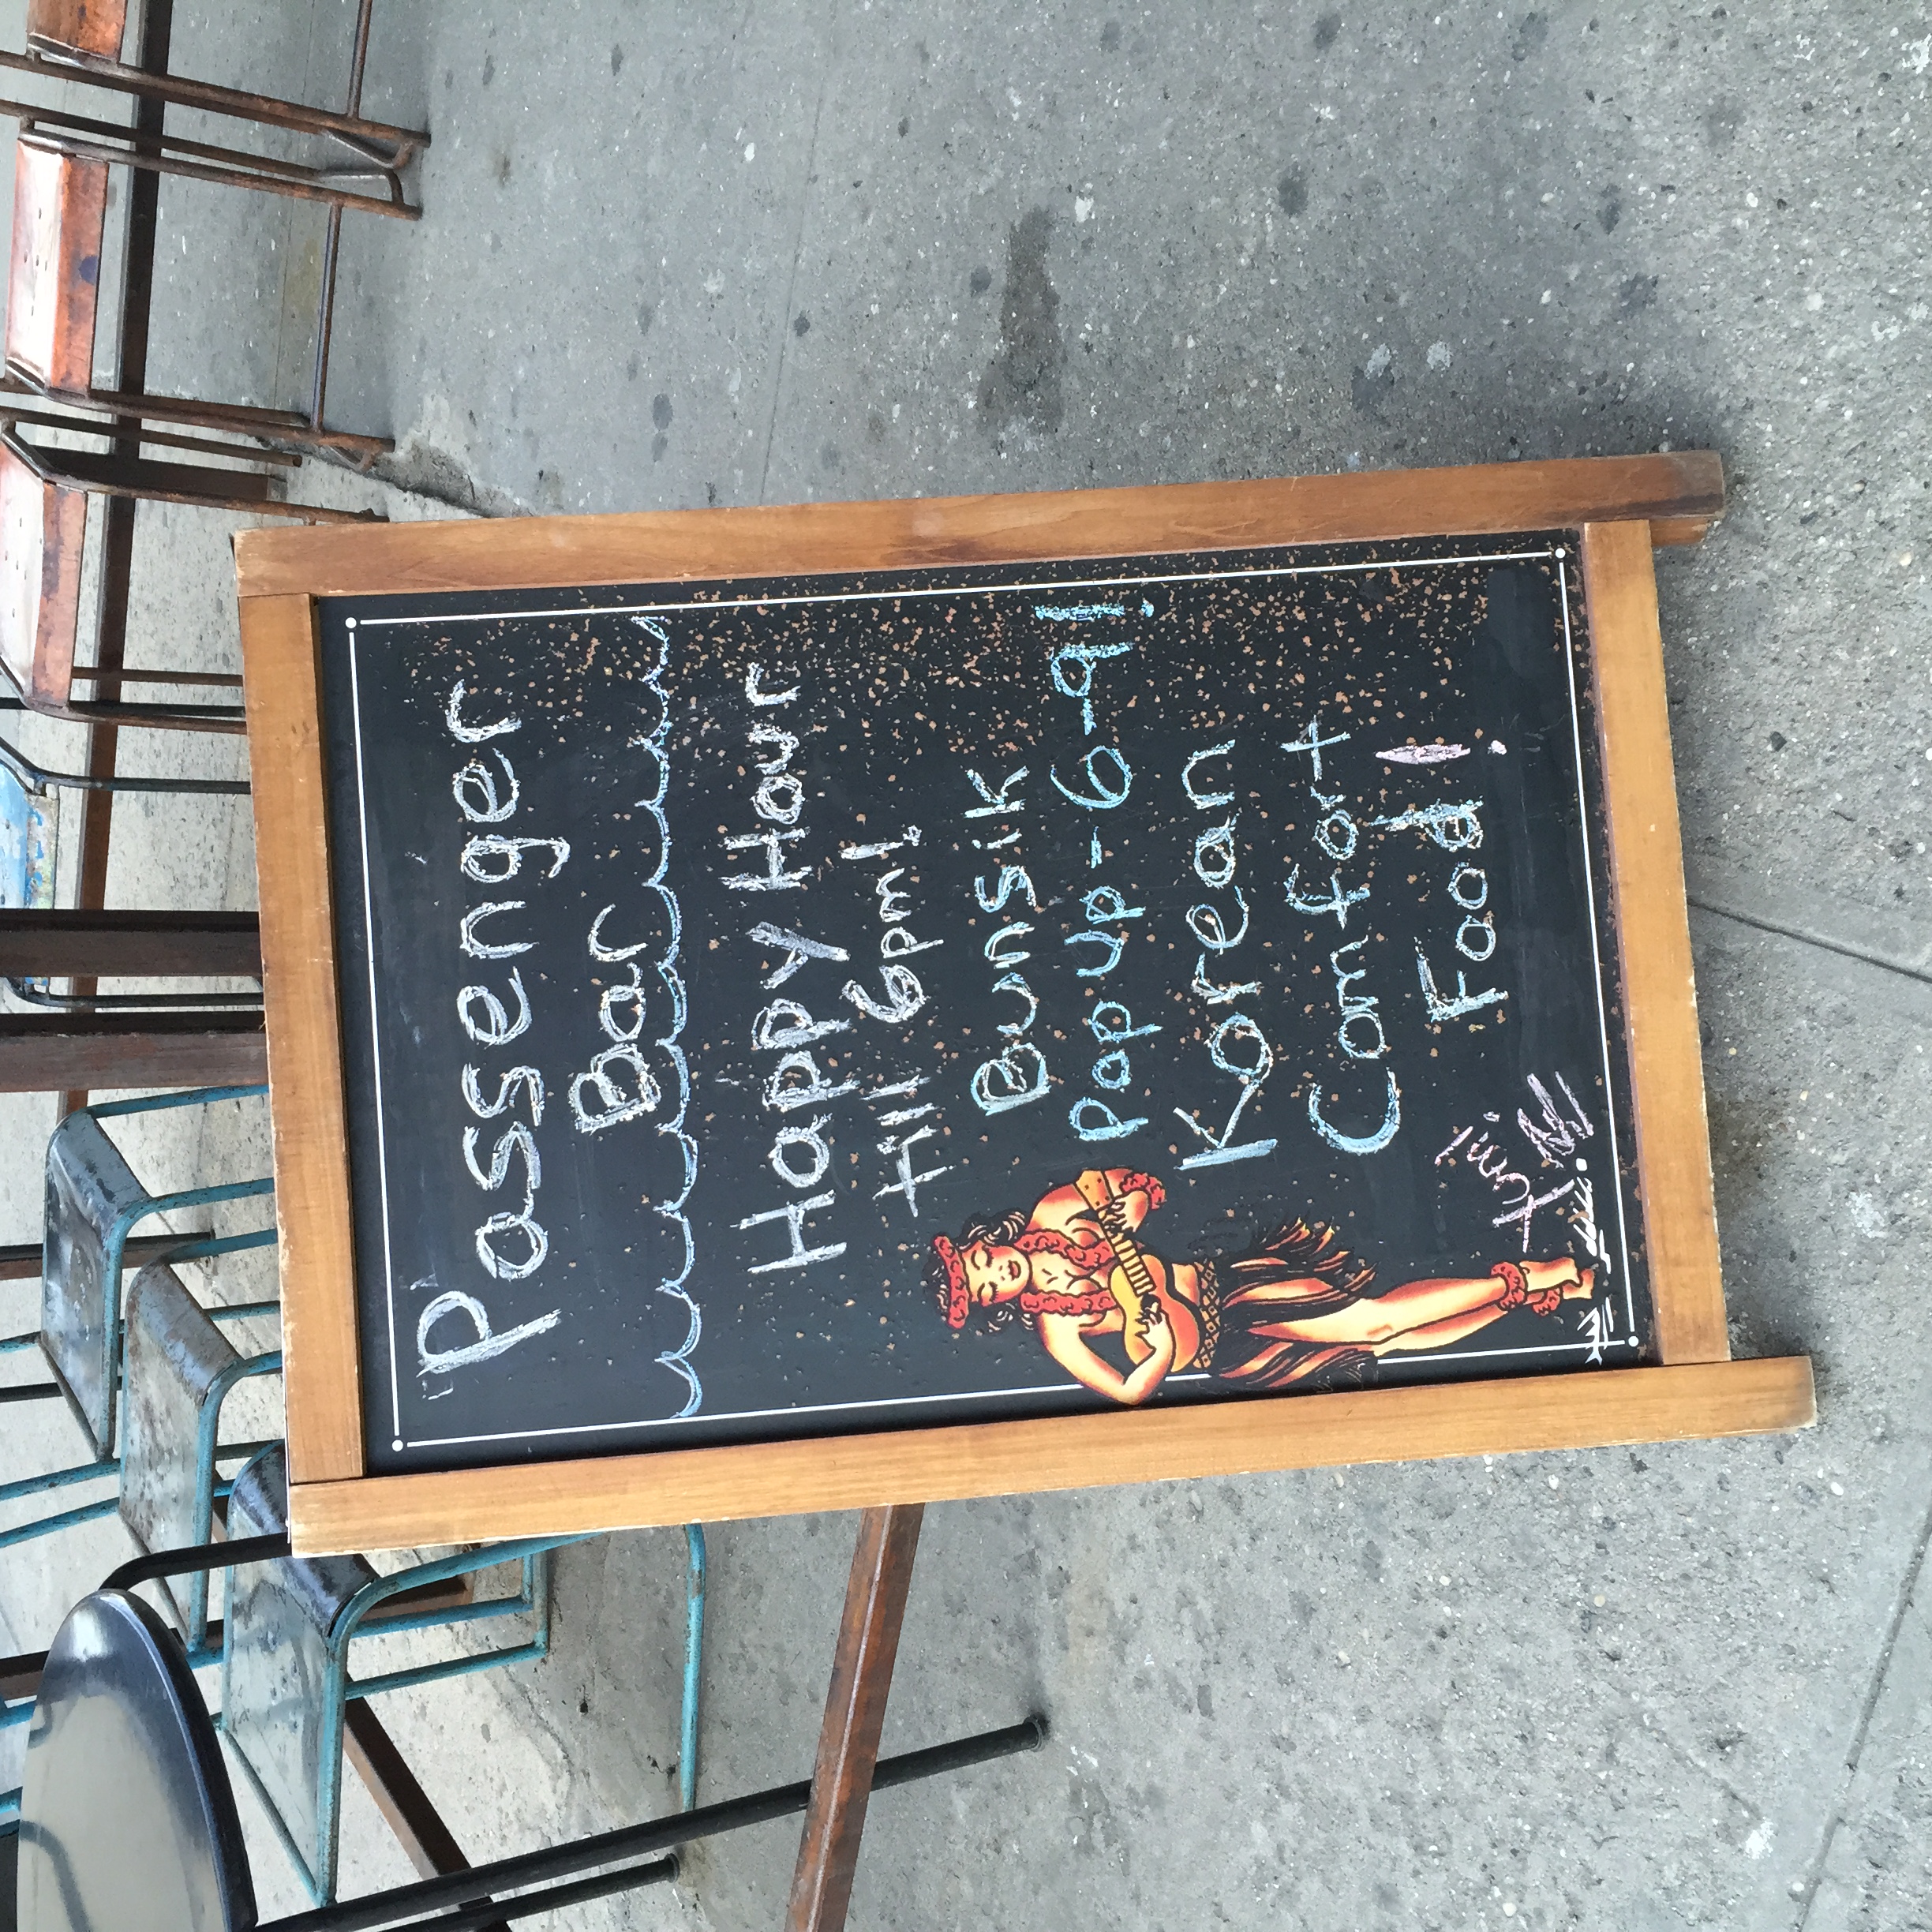 Passenger
Bar
Happy Hour
till 6pm!
Bunsik
Pop up - 6-9!
Korean
Comfort
Food!